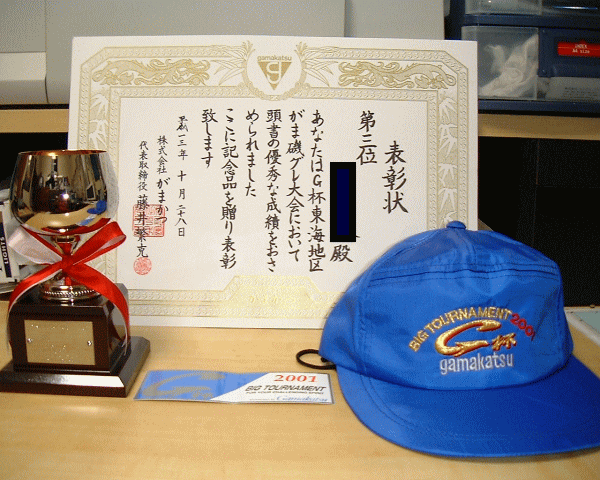 gamakatsu
G
表彰状
第三位
殿
あなたはG杯東海地区
がま磯グレ大会において
頭書の優秀な成績をおさ
められました
ここに記念品を贈り表彰
致します
平成十三年十月二十八日
株式会社がまかつ
代表取締役 藤井繁克
BIG TOURNAMENT 2001
G杯
gamakatsu
2001
BIG TOURNAMENT
Gamakatsu
UNDER